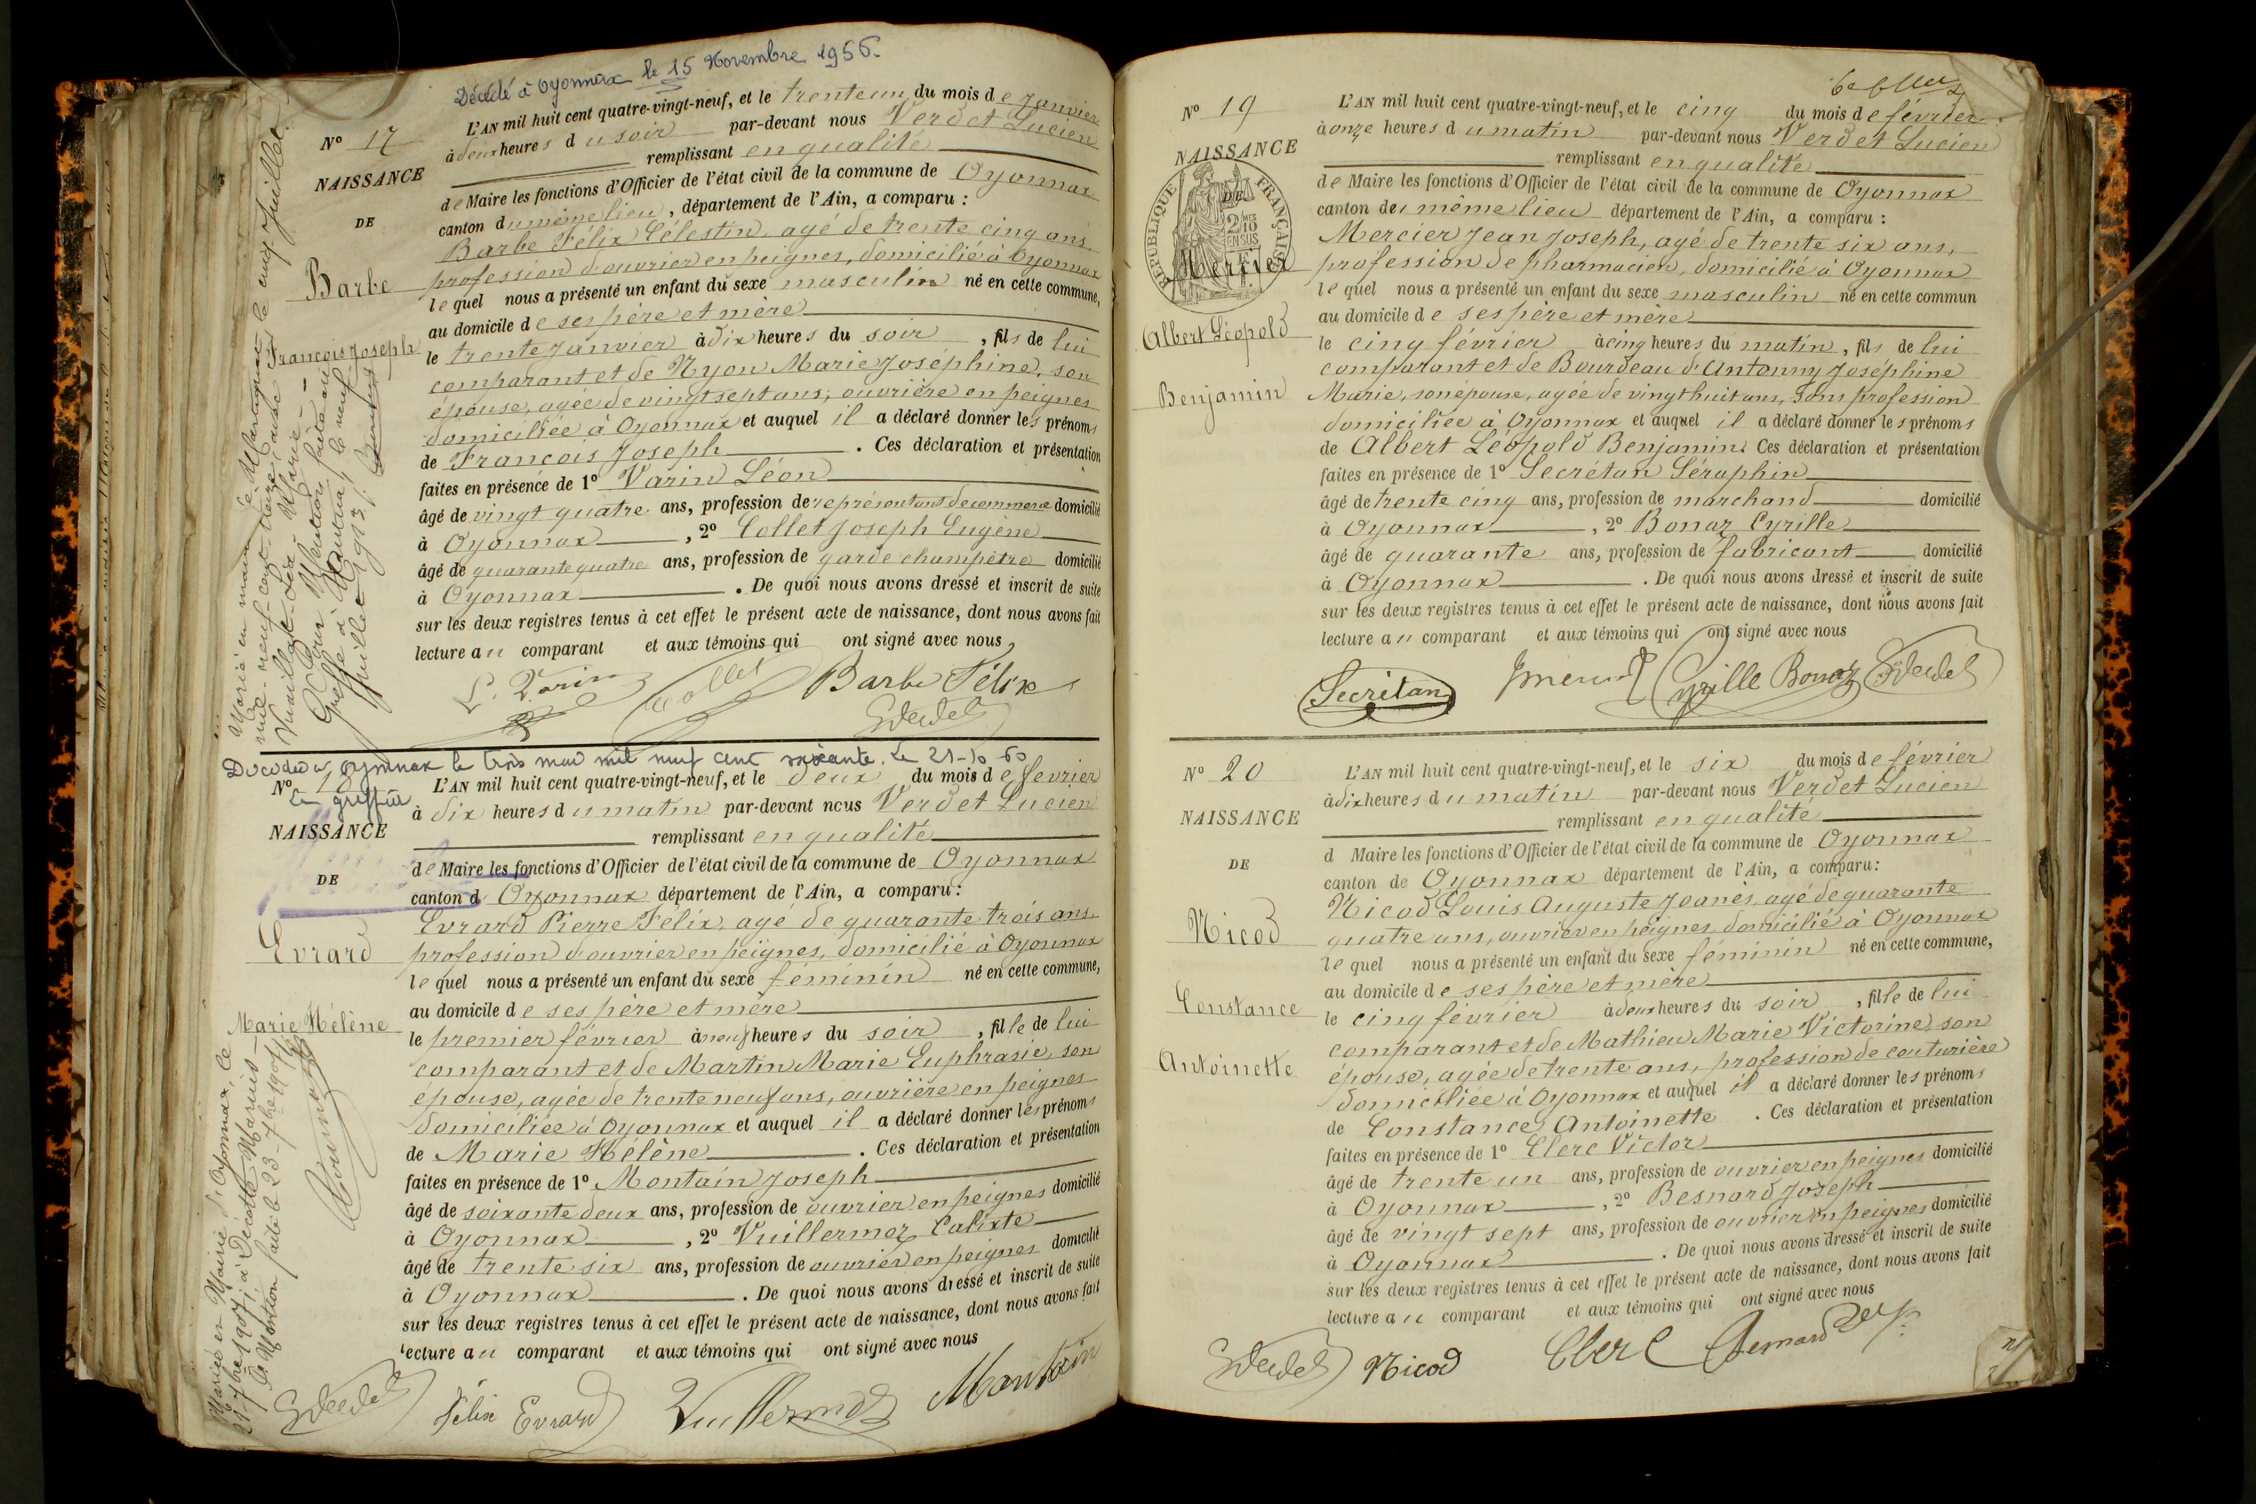 Décédé à Oyonnax le 15 Novembre 1956.
Nº 17
NAISSANCE
DE
Barbe
François Joseph
L'AN mil huit cent quatre-vingt-neuf, et le trente un du mois de Janvier
à deux heures du soir par-devant nous Verdet Lucien
remplissant en qualité
de Maire les fonctions d'Officier de l'état civil de la commune de Oyonnax
canton du même lieu, département de l'Ain, a comparu :
Barbe Félix Célestin, agé de trente cinq ans
profession d'ouvrier en peignes, domicilié à Oyonnax
lequel nous a présenté un enfant du sexe masculin né en cette commune,
au domicile de ses père et mère
le trente Janvier à dix heures du soir, fils de lui
comparant et de Nyon Marie Joséphine, son
épouse, agée de vingt sept ans, ouvrière en peignes
domiciliée à Oyonnax et auquel il a déclaré donner les prénoms
de François Joseph. Ces déclaration et présentation
faites en présence de 1º Varin Léon
âgé de vingt quatre ans, profession de représentant de commerce domicilié
à Oyonnax, 2º Collet Joseph Eugène
âgé de quarante quatre ans, profession de garde champêtre domicilié
à Oyonnax. De quoi nous avons dressé et inscrit de suite
sur les deux registres tenus à cet effet le présent acte de naissance, dont nous avons fait
lecture au comparant et aux témoins qui ont signé avec nous
L. Varin Collet Barbe Félix
Verdet
Marié en mairie de Martignat le cinq Juillet
mil-neuf-cent-treize, avec
Vuaillat Léa-Marie
Décédée à Oyonnax le trois mai mil neuf cent soixante. Le 21-10-60
Le greffier
Nº 18
NAISSANCE
DE
Evrard
Marie Hélène
L'AN mil huit cent quatre-vingt-neuf, et le deux du mois de février
à dix heures du matin par-devant nous Verdet Lucien
remplissant en qualité
de Maire les fonctions d'Officier de l'état civil de la commune de Oyonnax
canton d Oyonnax département de l'Ain, a comparu :
Evrard Pierre Félix, agé de quarante trois ans
profession d'ouvrier en peignes, domicilié à Oyonnax
lequel nous a présenté un enfant du sexe féminin né en cette commune,
au domicile de ses père et mère
le premier février à neuf heures du soir, fille de lui
comparant et de Martin Marie Euphrasie, son
épouse, agée de trente neuf ans, ouvrière en peignes
domiciliée à Oyonnax et auquel il a déclaré donner les prénoms
de Marie Hélène. Ces déclaration et présentation
faites en présence de 1º Montain Joseph
âgé de soixante deux ans, profession de ouvrier en peignes domicilié
à Oyonnax, 2º Vuillermoz Calixte
âgé de trente six ans, profession de ouvrier en peignes domicilié
à Oyonnax. De quoi nous avons dressé et inscrit de suite
sur les deux registres tenus à cet effet le présent acte de naissance, dont nous avons fait
lecture au comparant et aux témoins qui ont signé avec nous
Verdet Félix Evrard Vuillermoz Montain
Mariée en Mairie d'Oyonnax, le
21 7bre 1907, à Décotte Marius
la Mention faite le 23 7bre 1907
Nº 19
NAISSANCE
DE
RÉPUBLIQUE FRANÇAISE
2/10 EN SUS
Mercier
Albert Léopold
Benjamin
L'AN mil huit cent quatre-vingt-neuf, et le cinq du mois de février
à onze heures du matin par-devant nous Verdet Lucien
remplissant en qualité
de Maire les fonctions d'Officier de l'état civil de la commune de Oyonnax
canton de même lieu département de l'Ain, a comparu :
Mercier Jean Joseph, agé de trente six ans,
profession de pharmacien, domicilié à Oyonnax
lequel nous a présenté un enfant du sexe masculin né en cette commun
au domicile de ses père et mère
le cinq février à cinq heures du matin, fils de lui
comparant et de Bourdeau d'Antonny Joséphine
Marie, son épouse, agée de vingt huit ans, sans profession
domiciliée à Oyonnax et auquel il a déclaré donner les prénoms
de Albert Léopold Benjamin. Ces déclaration et présentation
faites en présence de 1º Secrétan Séraphin
âgé de trente cinq ans, profession de marchand domicilié
à Oyonnax, 2º Bonaz Cyrille
âgé de quarante ans, profession de fabricant domicilié
à Oyonnax. De quoi nous avons dressé et inscrit de suite
sur les deux registres tenus à cet effet le présent acte de naissance, dont nous avons fait
lecture au comparant et aux témoins qui ont signé avec nous
Secrétan Cyrille Bonaz Verdet
Nº 20
NAISSANCE
DE
Nicod
Constance
Antoinette
L'AN mil huit cent quatre-vingt-neuf, et le six du mois de février
à dix heures du matin par-devant nous Verdet Lucien
remplissant en qualité
d Maire les fonctions d'Officier de l'état civil de la commune de Oyonnax
canton de Oyonnax département de l'Ain, a comparu :
Nicod Louis Auguste Joanès, agé de quarante
quatre ans, ouvrier en peignes, domicilié à Oyonnax
lequel nous a présenté un enfant du sexe féminin né en cette commune,
au domicile de ses père et mère
le cinq février à deux heures du soir, fille de lui
comparant et de Mathieu Marie Victorine, son
épouse, agée de trente ans, profession de couturière
domiciliée à Oyonnax et auquel il a déclaré donner les prénoms
de Constance Antoinette. Ces déclaration et présentation
faites en présence de 1º Clerc Victor
âgé de trente un ans, profession de ouvrier en peignes domicilié
à Oyonnax, 2º Besnard Joseph
âgé de vingt sept ans, profession de ouvrier en peignes domicilié
à Oyonnax. De quoi nous avons dressé et inscrit de suite
sur les deux registres tenus à cet effet le présent acte de naissance, dont nous avons fait
lecture au comparant et aux témoins qui ont signé avec nous
Verdet Nicod Clerc Besnard